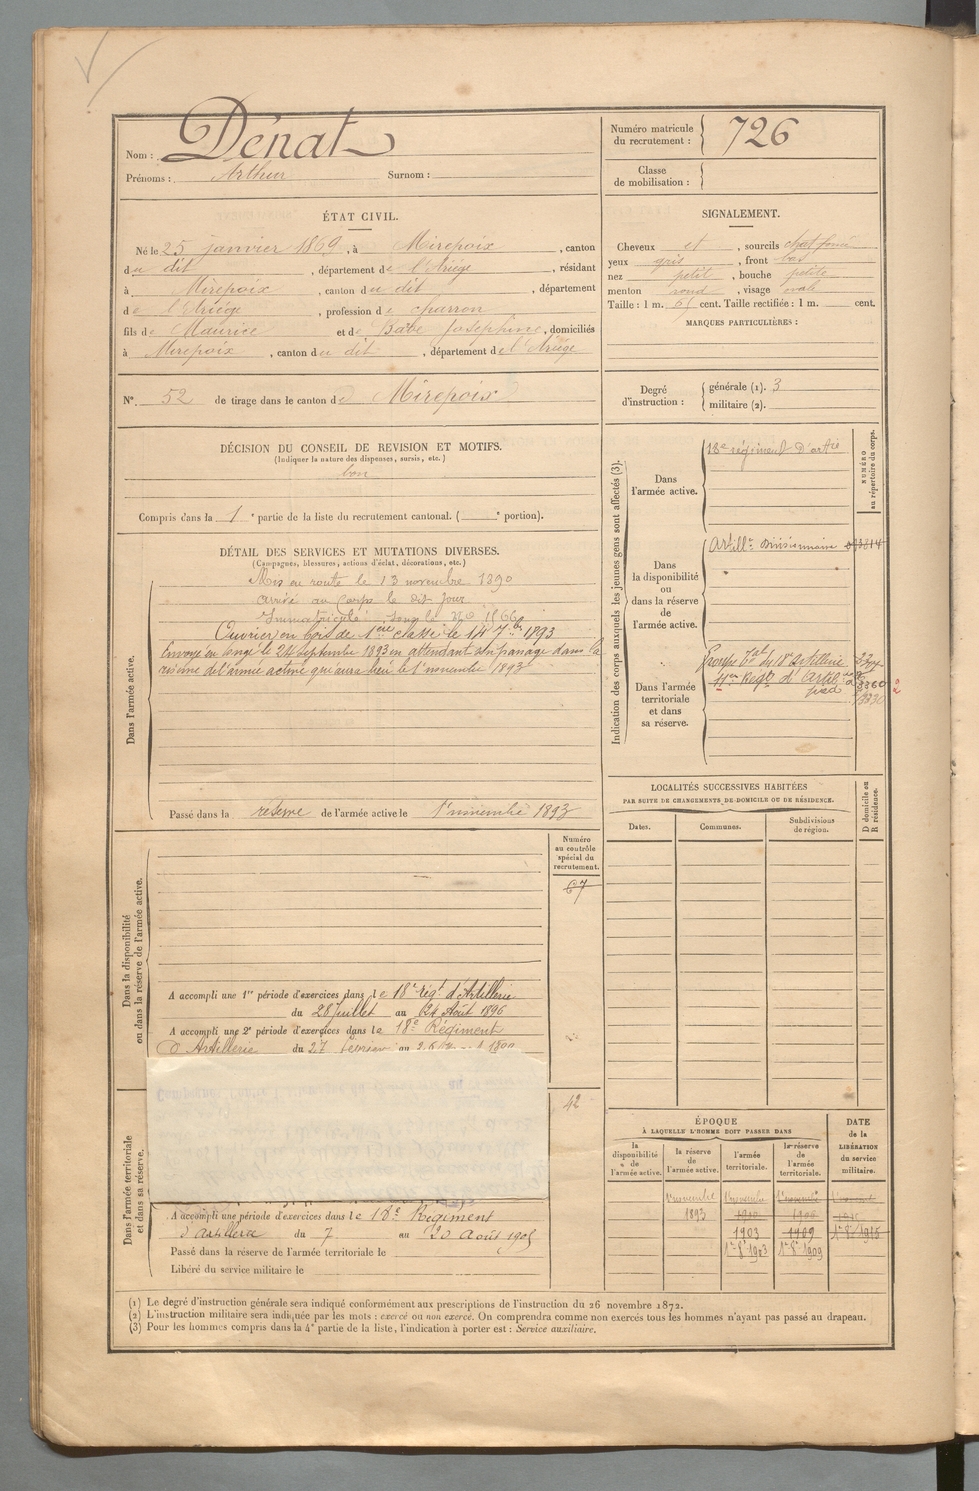 Nom : Dénat
Prénoms : Arthur Surnom :
Numéro matricule du recrutement : 726
Classe de mobilisation :
ÉTAT CIVIL.
Né le 25 janvier 1869, à Mirepoix, canton
du dit, département de l'Ariège, résidant
à Mirepoix, canton du dit, département
de l'Ariège, profession de charron
fils de Maurice et de Babe Joséphine, domiciliés
à Mirepoix, canton du dit, département de l'Ariège
SIGNALEMENT.
Cheveux et, sourcils chat foncé
yeux gris, front bas
nez petit, bouche petite
menton rond, visage ovale
Taille : 1 m. 61 cent. Taille rectifiée : 1 m. cent.
MARQUES PARTICULIÈRES :
N°. 52 de tirage dans le canton de Mirepoix
Degré d'instruction : générale (1). 3
militaire (2).
DÉCISION DU CONSEIL DE REVISION ET MOTIFS.
(Indiquer la nature des dispenses, sursis, etc.)
bon
Compris dans la 1e partie de la liste du recrutement cantonal. ( e portion).
DÉTAIL DES SERVICES ET MUTATIONS DIVERSES.
(Campagnes, blessures, actions d'éclat, décorations, etc.)
Dans l'armée active.
Mis en route le 13 novembre 1890
arrivé au Corps le dit jour
Immatriculé sous le No 1866
Ouvrier en bois de 1ère classe le 14 7bre 1893
Envoyé en congé le 24 septembre 1893 en attendant son passage dans la
réserve de l'armée active qui aura lieu le 1er novembre 1893
Passé dans la réserve de l'armée active le 1er novembre 1893
Indication des corps auxquels les jeunes gens sont affectés (3).
NUMÉRO au répertoire du corps.
Dans l'armée active.
18e régiment d'artie
Dans la disponibilité ou dans la réserve de l'armée active.
Artillie Divisionnaire
Dans l'armée territoriale et dans sa réserve.
Groupe Tal du 18e Artillerie
11er Regt d'Artil à pied
3360
LOCALITÉS SUCCESSIVES HABITÉES
PAR SUITE DE CHANGEMENTS DE DOMICILE OU DE RÉSIDENCE.
Dates. Communes. Subdivisions de région.
D domicile ou R résidence.
Dans la disponibilité ou dans la réserve de l'armée active.
Numéro au contrôle spécial du recrutement.
67
A accompli une 1re période d'exercices dans le 18e régt d'Artillerie
du 28 juillet au 24 Août 1896
A accompli une 2e période d'exercices dans le 18e Régiment
d'Artillerie du 27 février au
Dans l'armée territoriale et dans sa réserve.
42
A accompli une période d'exercices dans le 18e Régiment
d'artillerie du 7 au 20 Août 1905
Passé dans la réserve de l'armée territoriale le
Libéré du service militaire le
ÉPOQUE
À LAQUELLE L'HOMME DOIT PASSER DANS
la disponibilité de l'armée active.
la réserve de l'armée active.
l'armée territoriale.
la réserve de l'armée territoriale.
DATE de la LIBÉRATION du service militaire.
1er novembre 1er novembre 1er novembre
1893
1903 1909 1er 8bre 1915
1er 8bre 1903 1er 8bre 1909
(1) Le degré d'instruction générale sera indiqué conformément aux prescriptions de l'instruction du 26 novembre 1872.
(2) L'instruction militaire sera indiquée par les mots : exercé ou non exercé. On comprendra comme non exercés tous les hommes n'ayant pas passé au drapeau.
(3) Pour les hommes compris dans la 4e partie de la liste, l'indication à porter est : Service auxiliaire.